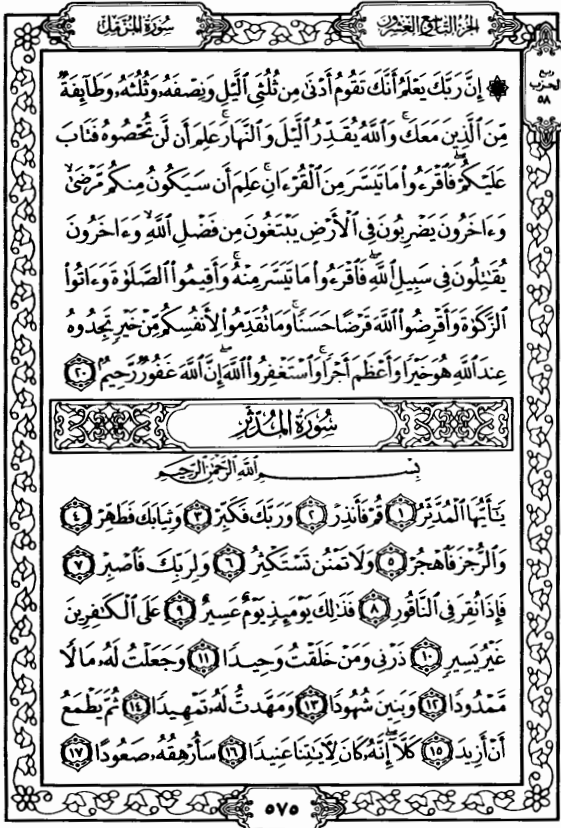 سُورَةُ المُزَّمِّل
الجُزْءُ التَّاسِعُ وَالعِشْرُونَ
ربع
الحزب
٥٨
۞ إِنَّ رَبَّكَ يَعْلَمُ أَنَّكَ تَقُومُ أَدْنَىٰ مِن ثُلُثَىِ ٱلَّيْلِ وَنِصْفَهُۥ وَثُلُثَهُۥ وَطَآئِفَةٌ
مِّنَ ٱلَّذِينَ مَعَكَ ۚ وَٱللَّهُ يُقَدِّرُ ٱلَّيْلَ وَٱلنَّهَارَ ۚ عَلِمَ أَن لَّن تُحْصُوهُ فَتَابَ
عَلَيْكُمْ ۖ فَٱقْرَءُوا۟ مَا تَيَسَّرَ مِنَ ٱلْقُرْءَانِ ۚ عَلِمَ أَن سَيَكُونُ مِنكُم مَّرْضَىٰ ۙ
وَءَاخَرُونَ يَضْرِبُونَ فِى ٱلْأَرْضِ يَبْتَغُونَ مِن فَضْلِ ٱللَّهِ ۙ وَءَاخَرُونَ
يُقَـٰتِلُونَ فِى سَبِيلِ ٱللَّهِ ۖ فَٱقْرَءُوا۟ مَا تَيَسَّرَ مِنْهُ ۚ وَأَقِيمُوا۟ ٱلصَّلَوٰةَ وَءَاتُوا۟
ٱلزَّكَوٰةَ وَأَقْرِضُوا۟ ٱللَّهَ قَرْضًا حَسَنًا ۚ وَمَا تُقَدِّمُوا۟ لِأَنفُسِكُم مِّنْ خَيْرٍ تَجِدُوهُ
عِندَ ٱللَّهِ هُوَ خَيْرًا وَأَعْظَمَ أَجْرًا ۚ وَٱسْتَغْفِرُوا۟ ٱللَّهَ ۖ إِنَّ ٱللَّهَ غَفُورٌ رَّحِيمٌۢ ٢٠
سُورَةُ المُدَّثِّرِ
بِسْمِ ٱللَّهِ ٱلرَّحْمَـٰنِ ٱلرَّحِيمِ
يَـٰٓأَيُّهَا ٱلْمُدَّثِّرُ ١ قُمْ فَأَنذِرْ ٢ وَرَبَّكَ فَكَبِّرْ ٣ وَثِيَابَكَ فَطَهِّرْ ٤
وَٱلرُّجْزَ فَٱهْجُرْ ٥ وَلَا تَمْنُن تَسْتَكْثِرُ ٦ وَلِرَبِّكَ فَٱصْبِرْ ٧
فَإِذَا نُقِرَ فِى ٱلنَّاقُورِ ٨ فَذَٰلِكَ يَوْمَئِذٍ يَوْمٌ عَسِيرٌ ٩ عَلَى ٱلْكَـٰفِرِينَ
غَيْرُ يَسِيرٍ ١٠ ذَرْنِى وَمَنْ خَلَقْتُ وَحِيدًا ١١ وَجَعَلْتُ لَهُۥ مَالًا
مَّمْدُودًا ١٢ وَبَنِينَ شُهُودًا ١٣ وَمَهَّدتُّ لَهُۥ تَمْهِيدًا ١٤ ثُمَّ يَطْمَعُ
أَنْ أَزِيدَ ١٥ كَلَّآ ۖ إِنَّهُۥ كَانَ لِـَٔايَـٰتِنَا عَنِيدًا ١٦ سَأُرْهِقُهُۥ صَعُودًا ١٧
٥٧٥